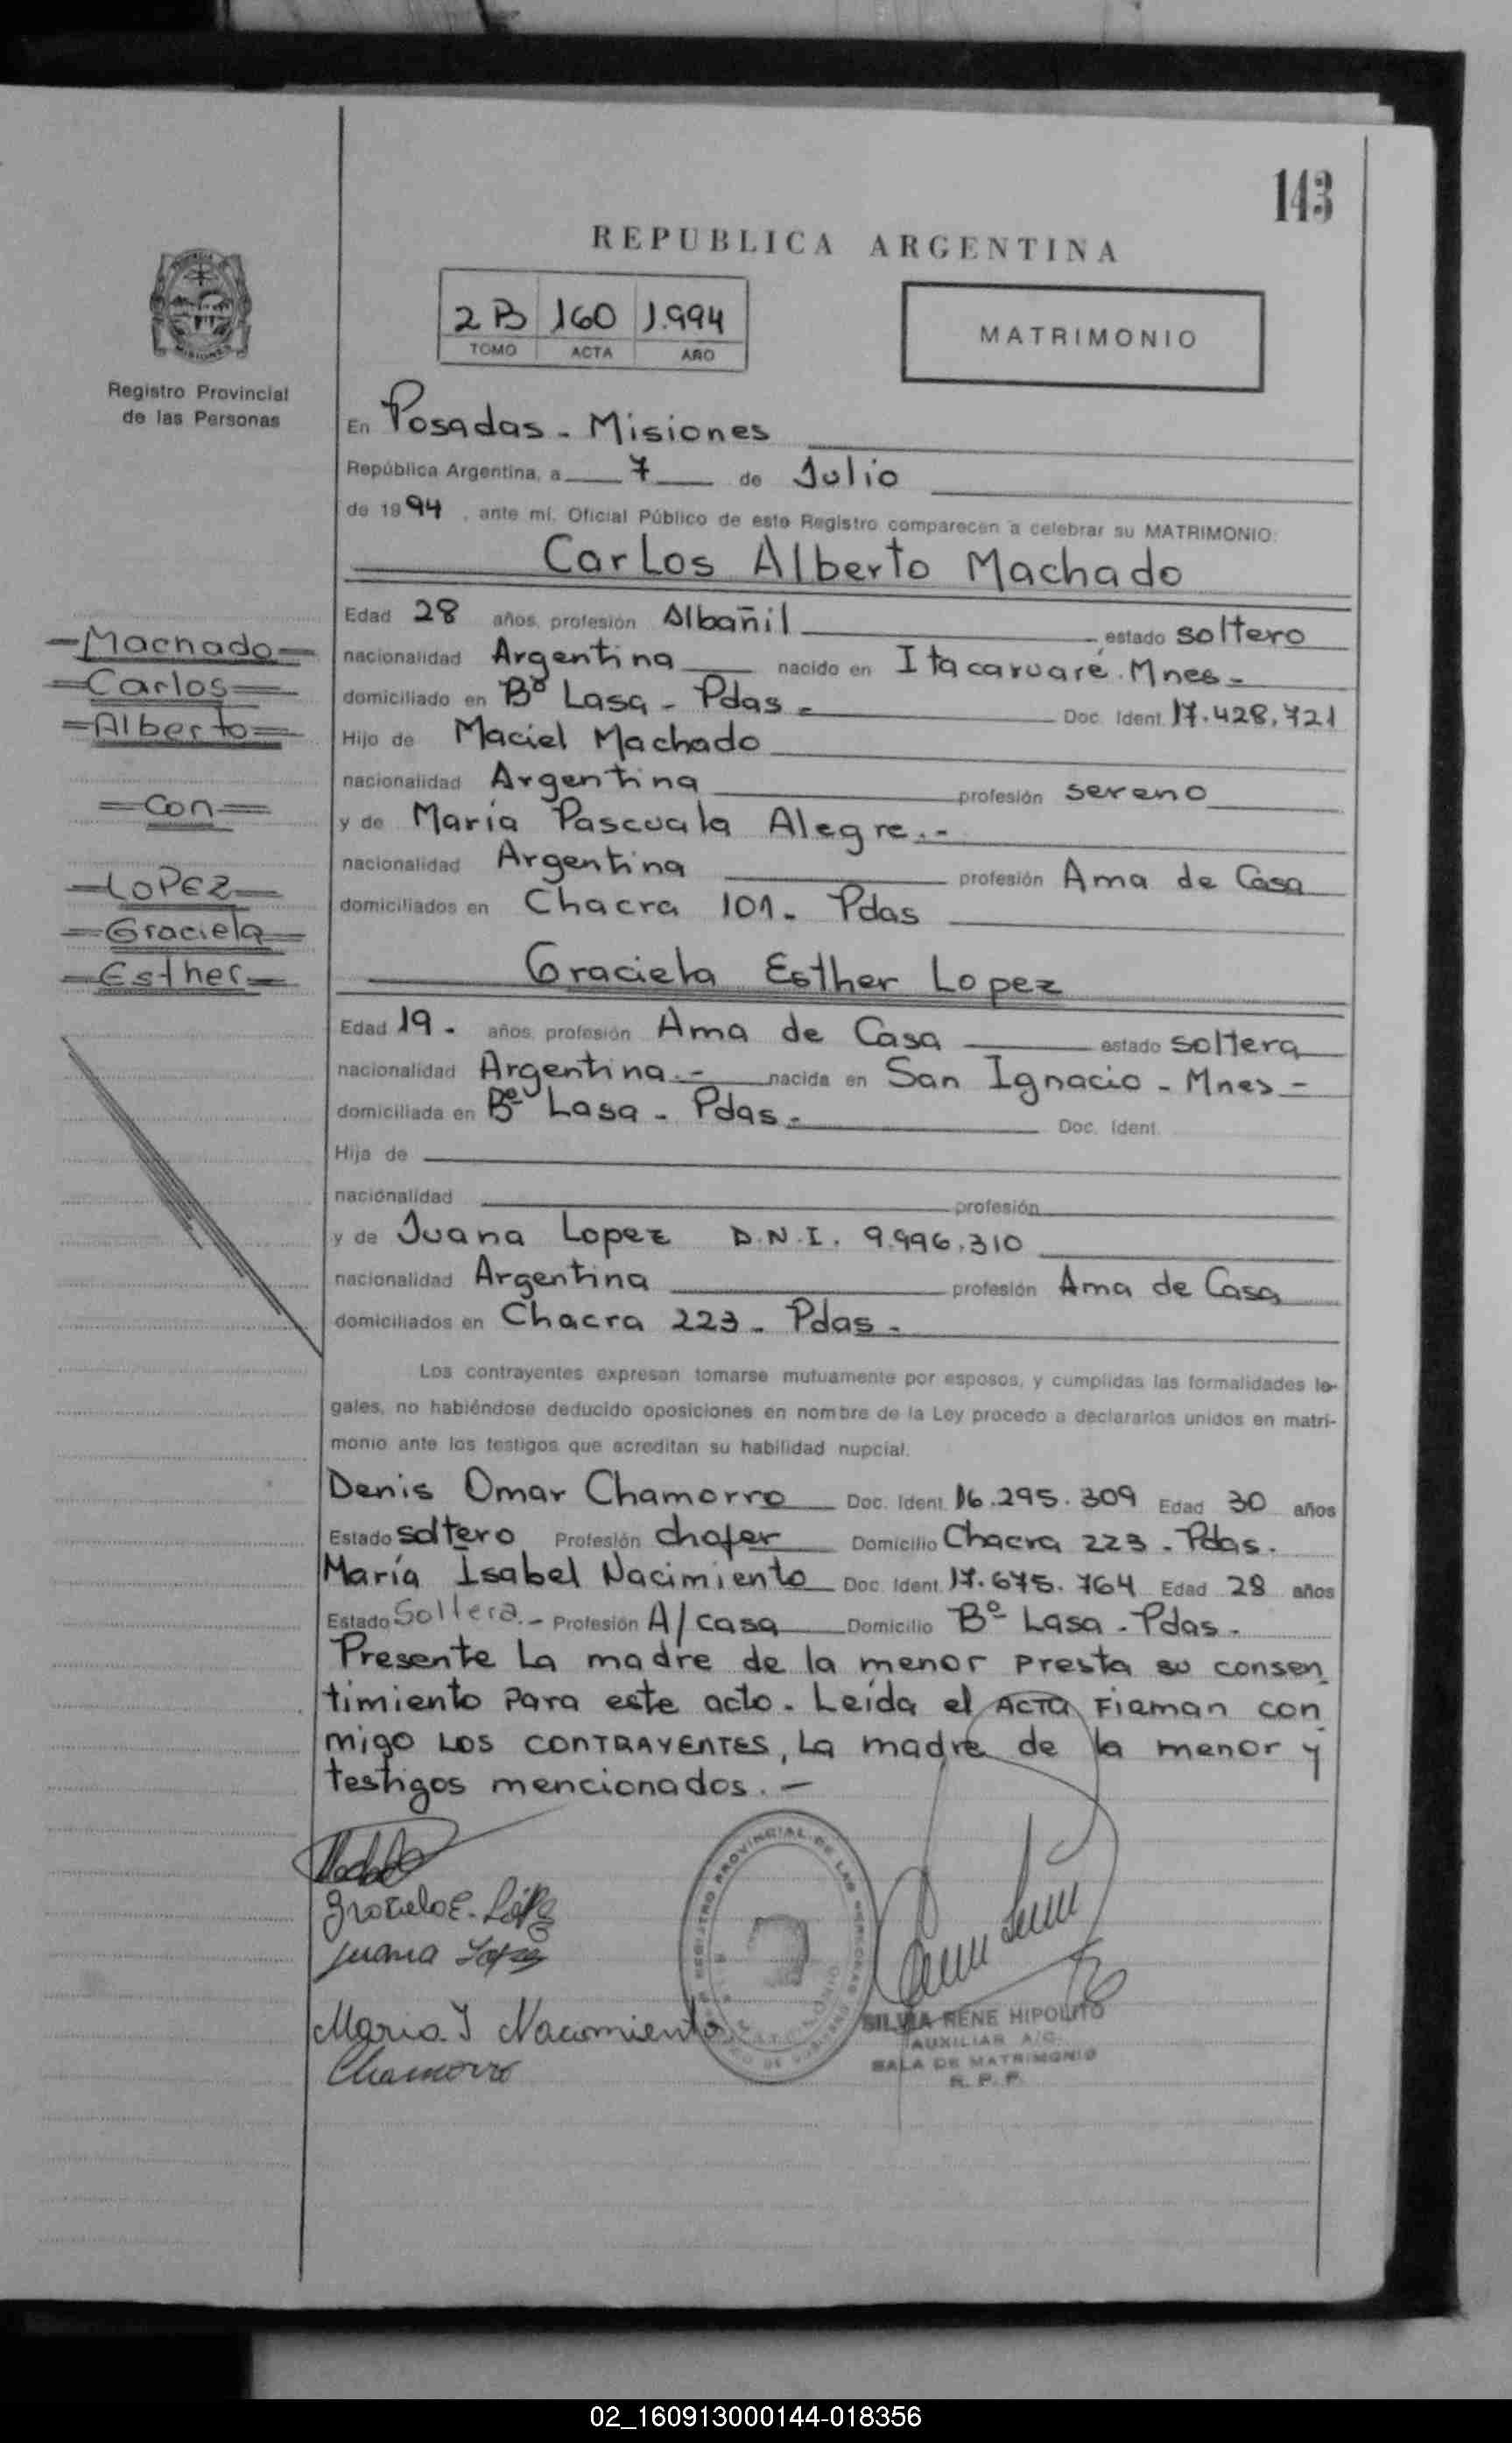 143
REPUBLICA ARGENTINA
2B 160 1.994
TOMO ACTA AÑO
MATRIMONIO
Registro Provincial
de las Personas
En Posadas - Misiones
República Argentina, a 7 de Julio
de 1994, ante mí, Oficial Público de este Registro comparecen a celebrar su MATRIMONIO:
Carlos Alberto Machado
Edad 28 años, profesión Albañil estado soltero
nacionalidad Argentina nacido en Itacaruaré. Mnes -
domiciliado en Bº Lasa - Pdas - Doc. Ident. 17.428.721
Hijo de Maciel Machado
nacionalidad Argentina profesión sereno
y de María Pascuala Alegre.-
nacionalidad Argentina profesión Ama de Casa
domiciliados en Chacra 101. Pdas
Graciela Esther Lopez
Edad 19. años, profesión Ama de Casa estado soltera
nacionalidad Argentina.- nacida en San Ignacio - Mnes -
domiciliada en Bº Lasa - Pdas - Doc. Ident.
Hija de
nacionalidad profesión
y de Juana Lopez D.N.I. 9.996.310
nacionalidad Argentina profesión Ama de Casa
domiciliados en Chacra 223 - Pdas -
Machado
Carlos
Alberto
con
LOPEZ
Graciela
Esther
Los contrayentes expresan tomarse mutuamente por esposos, y cumplidas las formalidades le-
gales, no habiéndose deducido oposiciones en nombre de la Ley procedo a declararlos unidos en matri-
monio ante los testigos que acreditan su habilidad nupcial.
Denis Omar Chamorro Doc. Ident. 16.295.309 Edad 30 años
Estado soltero Profesión chofer Domicilio Chacra 223 - Pdas.
María Isabel Nacimiento Doc. Ident. 17.675.764 Edad 28 años
Estado Soltera.- Profesión A/casa Domicilio Bº Lasa - Pdas -
Presente la madre de la menor presta su consen
timiento para este acto. Leída el ACTA Firman con
migo LOS CONTRAYENTES, la madre de la menor y
testigos mencionados. -
Graciela E. López
Juana Lopez
María I Nacimiento
Chamorro
REGISTRO PROVINCIAL DE LAS PERSONAS
SILVIA RENE HIPOLITO
AUXILIAR A/C.
SALA DE MATRIMONIO
R. P. P.
02_160913000144-018356